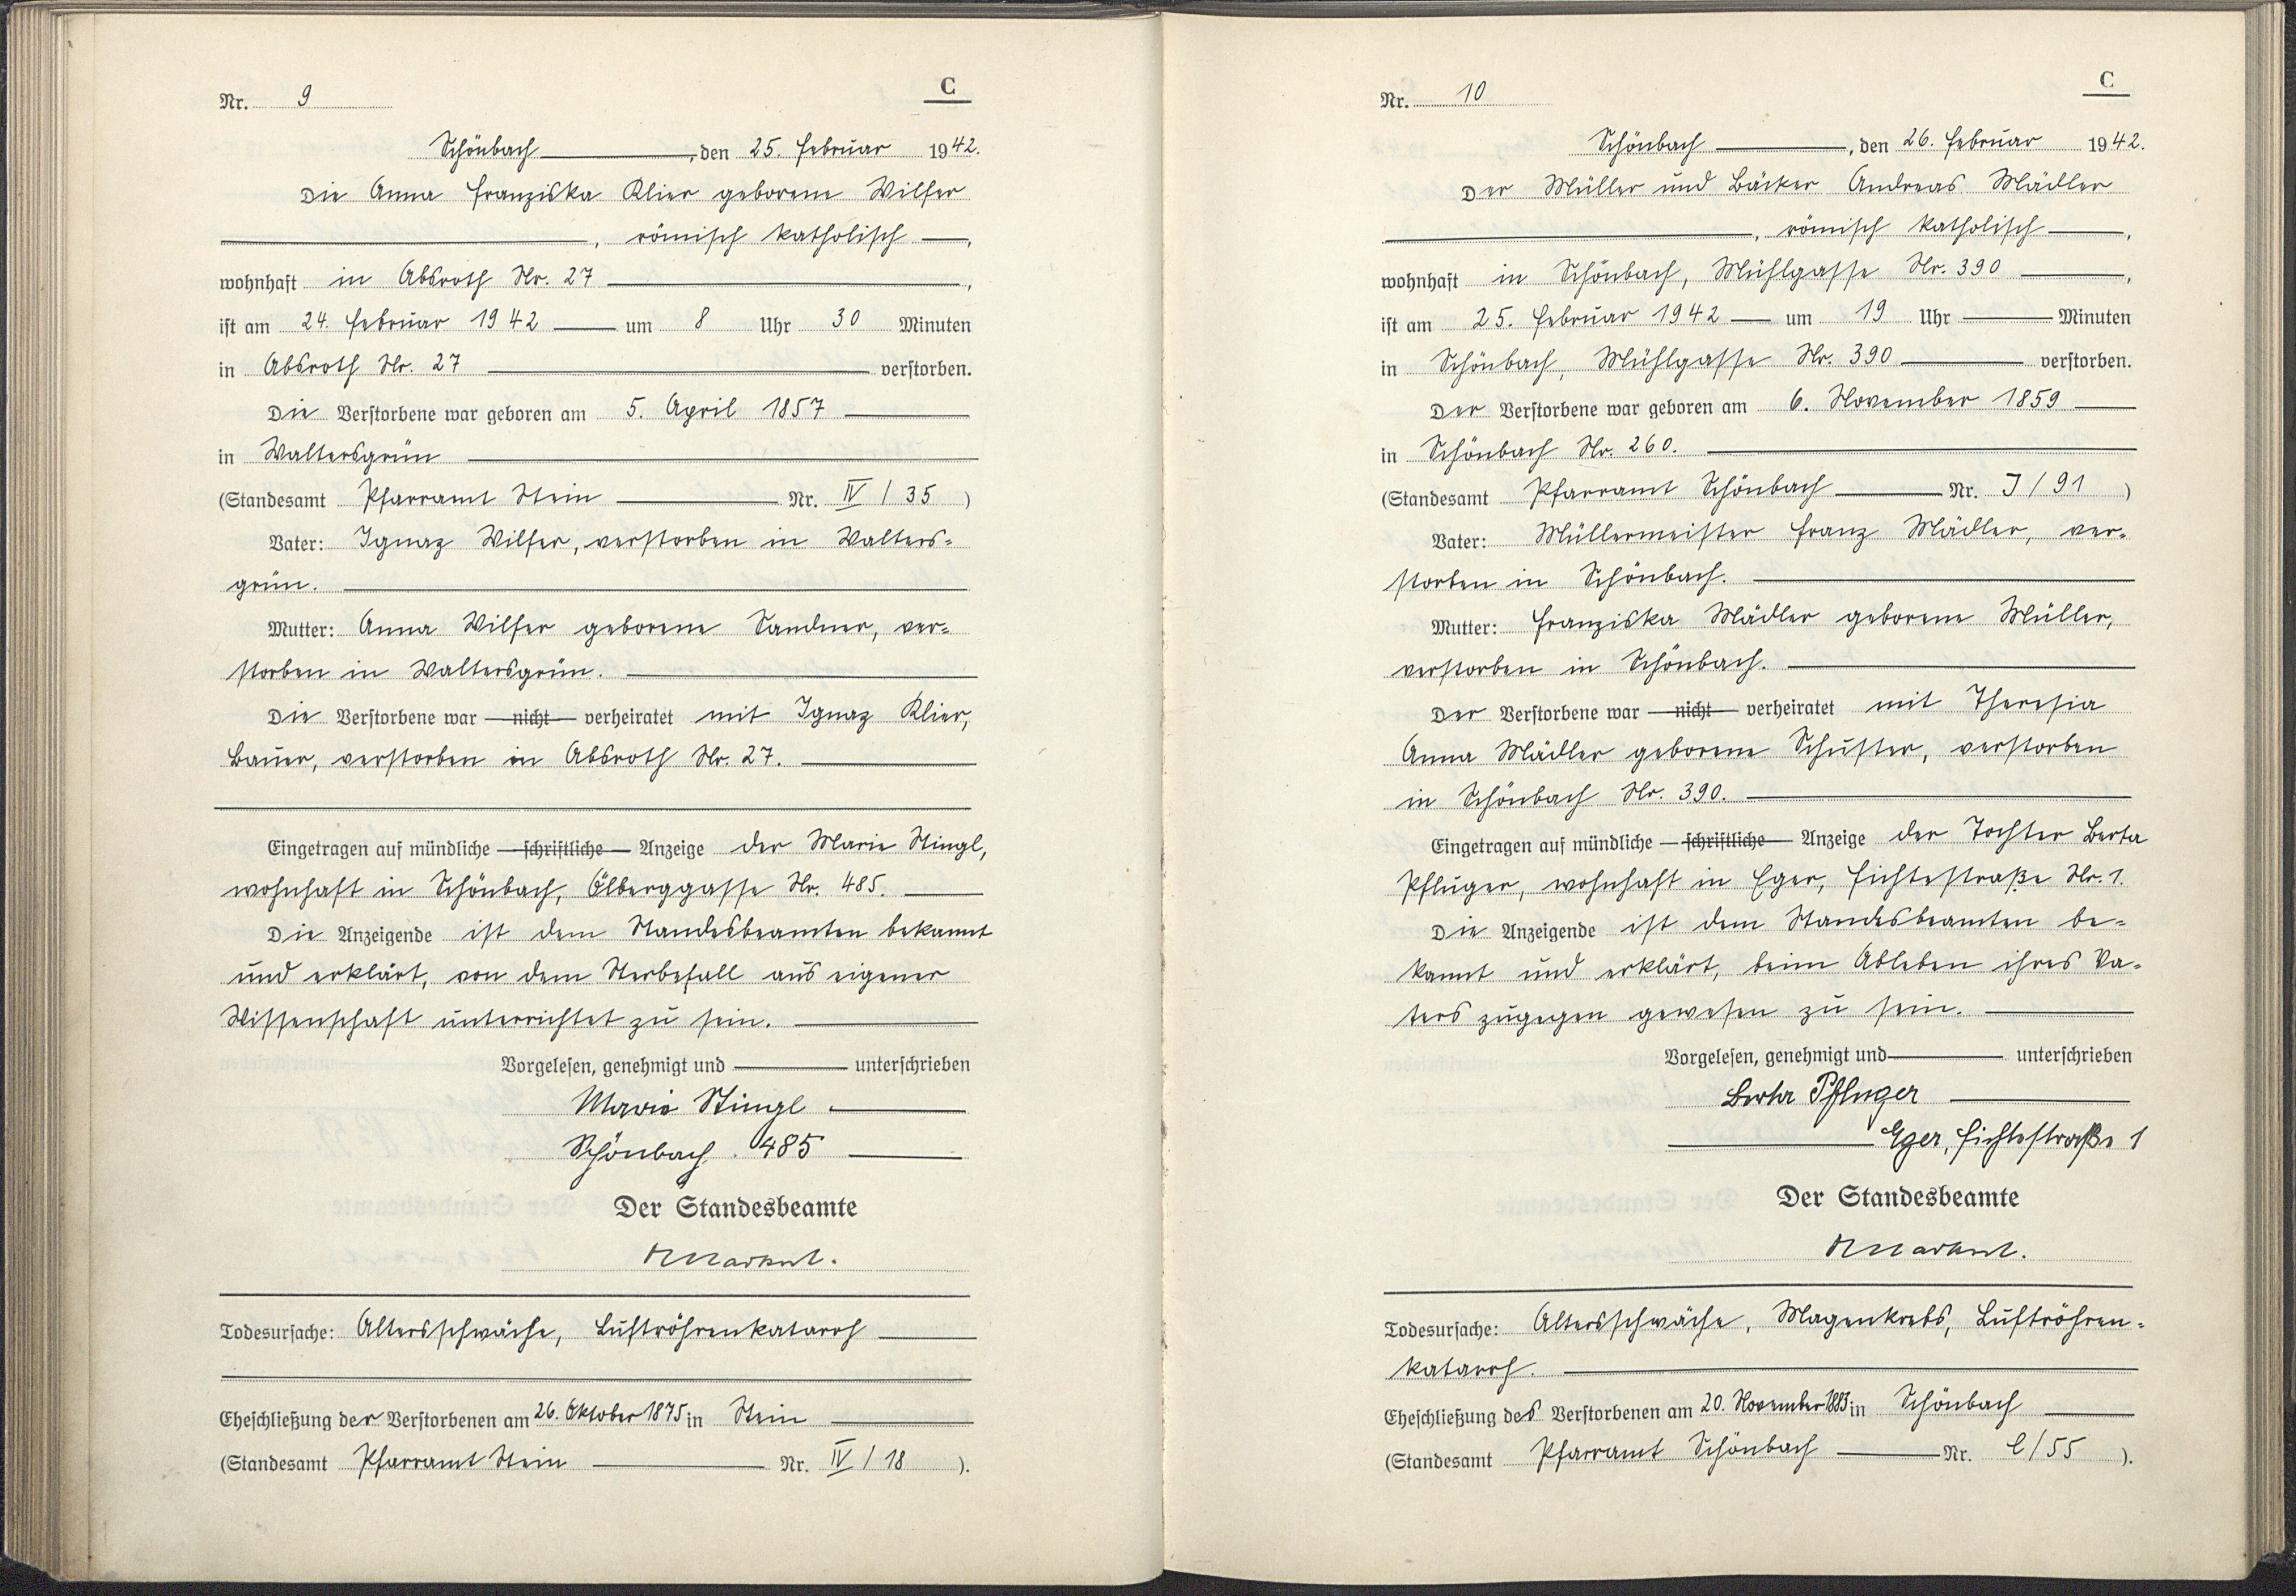 Nr. 9
C
Schönbach, den 25. Februar 1942.
Die Anna Franziska Klier geborene Wilfer
, römisch katholisch,
wohnhaft in Absroth Nr. 27,
ist am 24. Februar 1942 um 8 Uhr 30 Minuten
in Absroth Nr. 27 verstorben.
Die Verstorbene war geboren am 5. April 1857
in Waltersgrün
(Standesamt Pfarramt Stein Nr. IV / 35 )
Vater: Ignaz Wilfer, verstorben in Walters=
grün.
Mutter: Anna Wilfer geborene Sandner, ver=
storben in Waltersgrün.
Die Verstorbene war nicht verheiratet mit Ignaz Klier,
Bauer, verstorben in Absroth Nr. 27.
Eingetragen auf mündliche schriftliche Anzeige der Marie Stingl,
wohnhaft in Schönbach, Ölberggasse Nr. 485.
Die Anzeigende ist dem Standesbeamten bekannt
und erklärt, von dem Sterbefall aus eigener
Wissenschaft unterrichtet zu sein.
Vorgelesen, genehmigt und unterschrieben
Marie Stingl
Schönbach. 485
Der Standesbeamte
Todesursache: Altersschwäche, Luftröhrenkatarrh
Eheschließung der Verstorbenen am 26. Oktober 1875 in Stein
(Standesamt Pfarramt Stein Nr. IV / 18 ).
Nr. 10
C
Schönbach, den 26. Februar 1942.
Der Müller und Bäcker Andreas Mädler
, römisch katholisch,
wohnhaft in Schönbach, Mühlgasse Nr. 390,
ist am 25. Februar 1942 um 19 Uhr Minuten
in Schönbach, Mühlgasse Nr. 390 verstorben.
Der Verstorbene war geboren am 6. November 1859
in Schönbach Nr. 260.
(Standesamt Pfarramt Schönbach Nr. J / 91 )
Vater: Müllermeister Franz Mädler, ver=
storben in Schönbach.
Mutter: Franziska Mädler geborene Müller,
verstorben in Schönbach.
Der Verstorbene war nicht verheiratet mit Theresia
Anna Mädler geborene Schuster, verstorben
in Schönbach Nr. 390.
Eingetragen auf mündliche schriftliche Anzeige der Tochter Berta
Pfluger, wohnhaft in Eger, Fichtestraße Nr. 1.
Die Anzeigende ist dem Standesbeamten be=
kannt und erklärt, beim Ableben ihres Va=
ters zugegen gewesen zu sein.
Vorgelesen, genehmigt und unterschrieben
Berta Pfluger
Eger, Fichtestraße 1
Der Standesbeamte
Todesursache: Altersschwäche, Magenkrebs, Luftröhren=
katarrh.
Eheschließung des Verstorbenen am 20. November 1883 in Schönbach
(Standesamt Pfarramt Schönbach Nr. C / 55 ).